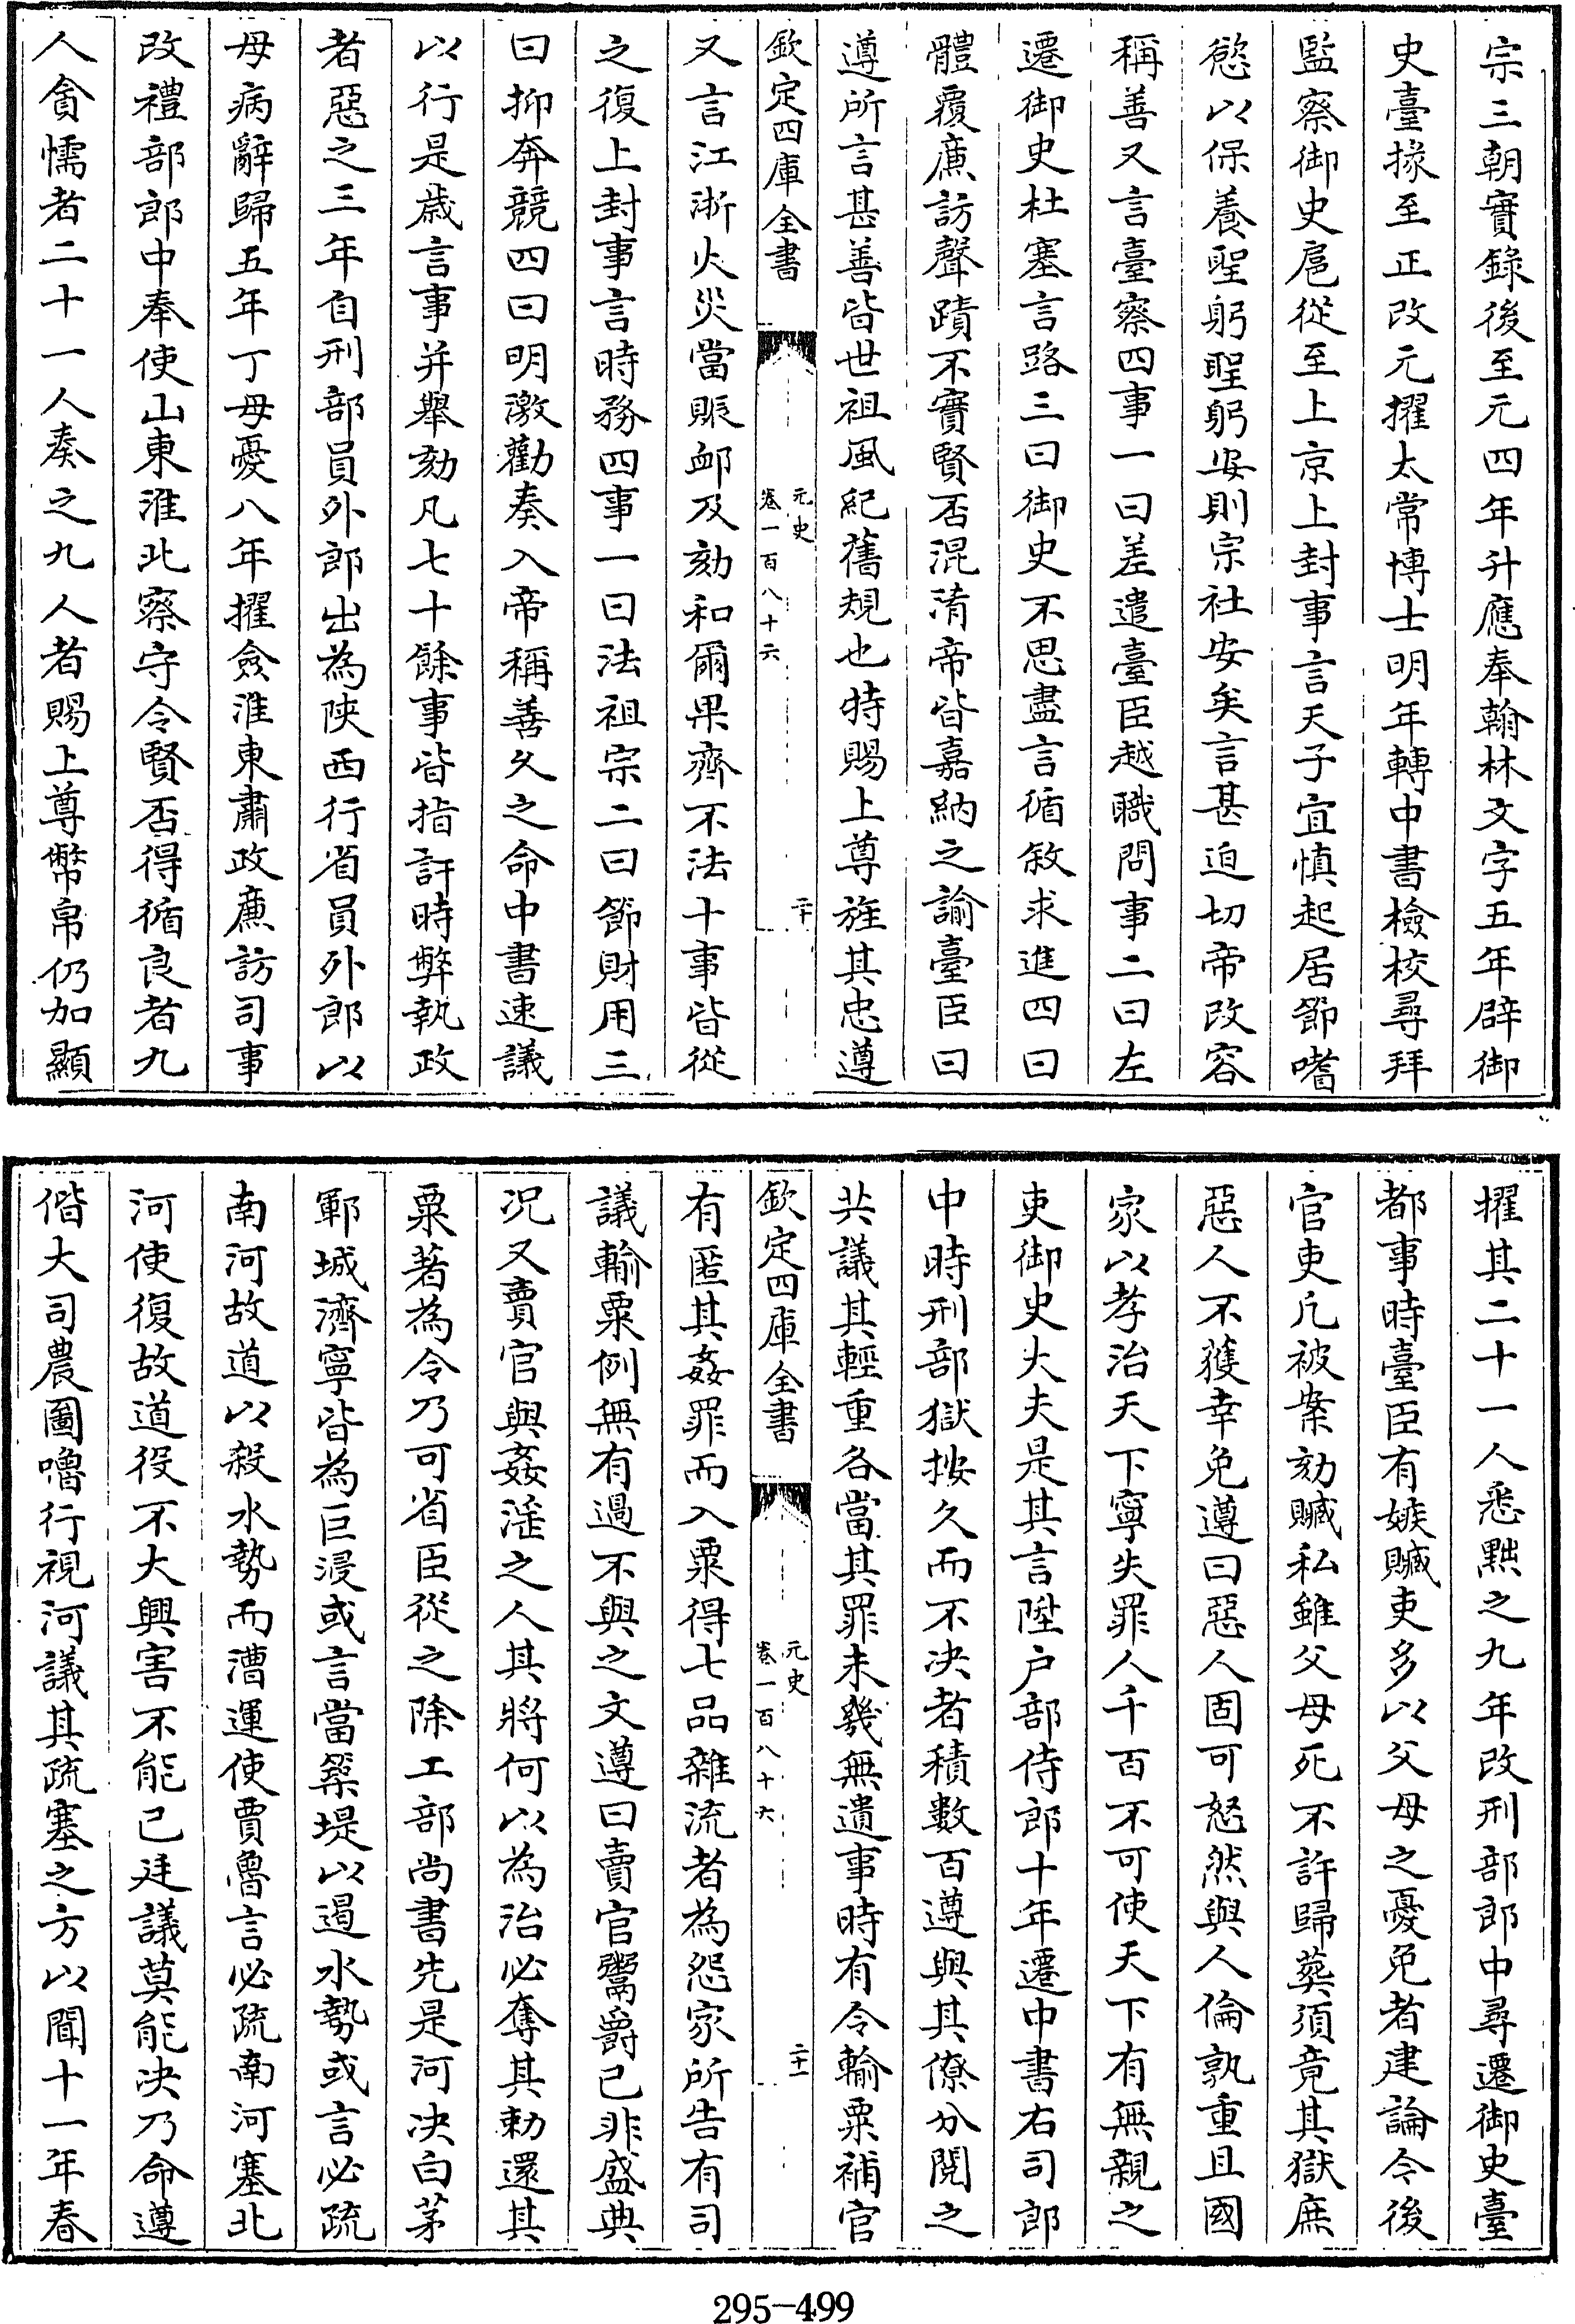 宗三朝實錄後至元四年升應奉翰林文字五年辟御
史臺掾至正改元擢太常博士明年轉中書檢校尋拜
監察御史扈從至上京上封事言天子宜慎起居節嗜
慾以保養聖躬聖躬安則宗社安矣言甚迫切帝改容
稱善又言臺察四事一曰差遣臺臣越職問事二曰左
遷御史杜塞言路三曰御史不思盡言循敘求進四曰
體覆廉訪聲蹟不實賢否混淆帝皆嘉納之諭臺臣曰
遵所言甚善皆世祖風紀舊規也特賜上尊旌其忠遵
欽定四庫全書
元史
卷一百八十六
二十
又言江浙火災當賑卹及劾和爾果齊不法十事皆從
之復上封事言時務四事一曰法祖宗二曰節財用三
曰抑奔競四曰明激勸奏入帝稱善久之命中書速議
以行是歲言事并舉劾凡七十餘事皆指訐時弊執政
者惡之三年自刑部員外郎出為陜西行省員外郎以
母病辭歸五年丁母憂八年擢僉淮東肅政廉訪司事
改禮部郎中奉使山東淮北察守令賢否得循良者九
人貪懦者二十一人奏之九人者賜上尊幣帛仍加顯
擢其二十一人悉黜之九年改刑部郎中尋遷御史臺
都事時臺臣有嫉贓吏多以父母之憂免者建論今後
官吏凡被案劾贓私雖父母死不許歸葬須竟其獄庶
惡人不獲幸免遵曰惡人固可怒然與人倫孰重且國
家以孝治天下寧失罪人千百不可使天下有無親之
吏御史大夫是其言陞户部侍郎十年遷中書右司郎
中時刑部獄按久而不决者積數百遵與其僚分閱之
共議其輕重各當其罪未幾無遺事時有令輸粟補官
欽定四庫全書
元史
卷一百八十六
二十一
有匿其姦罪而入粟得七品雜流者為怨家所告有司
議輸粟例無有過不與之文遵曰賣官鬻爵已非盛典
况又賣官與姦淫之人其將何以為治必奪其勅還其
粟著為令乃可省臣從之除工部尚書先是河决白茅
鄆城濟寧皆為巨浸或言當築堤以遏水勢或言必疏
南河故道以殺水勢而漕運使賈魯言必疏南河塞北
河使復故道役不大興害不能已廷議莫能决乃命遵
偕大司農圖嚕行視河議其疏塞之方以聞十一年春
295-499